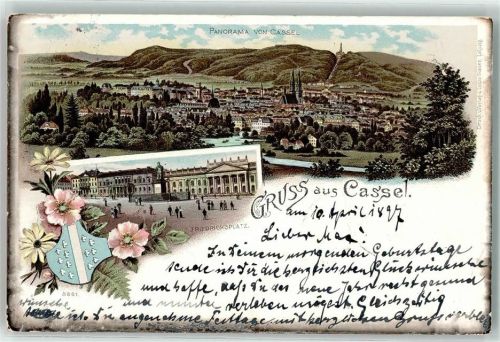 PANORAMA VON CASSEL
FRIEDRICHSPLATZ.
GRUSS aus Cassel.
am 10. April 1897
Lieber Max!
Zu Deinem morgenden Geburtstage
sende ich Dir die herzlichsten Glückwünsche
und hoffe, daß Du das neue Jahr recht gesund
und munter verleben mögest. Gleichzeitig
wünsche ich Dir angenehme Festtage mit herzlichen Gruß